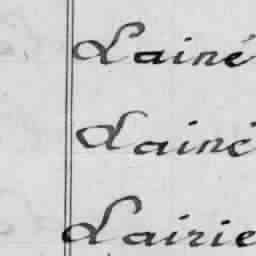 Lainé
Lainé
Lairie